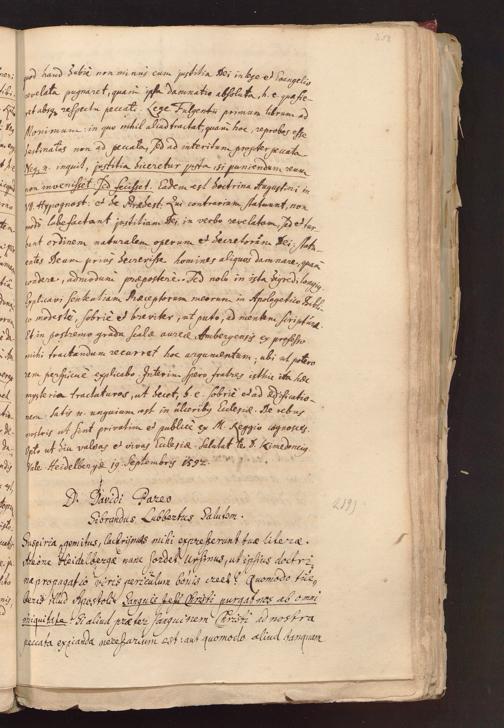 quod haud dubie non minus cum justitia Dei in lege et Evangelio
revelata pugnaret, quam ipsa damnatio absoluta, h. e. quae fie-
ret absq; respectu peccati. Lege Fulgentii primum librum ad
Monimum: in quo nihil aliud tractat, quam hoc, reprobos esse
destinatos non ad peccata, sed ad interitum propter peccata.
Neq; n. inquit, justitia diceretur justa, si puniendum reum
non invenisset, sed fecisset. Eadem est doctrina Augustini in
VI. Hypognost. et de Praedest. Qui contrarium statuunt, non
modo labefactant justitiam Dei, in verbo revelatam, sed et tur-
bant ordinem naturalem operum et decretorum Dei; statu-
entes Deum prius decrevisse homines aliquos damnare, quam
condere, admodum praepostere. Sed nolo in ista digredi longius.
Explicavi sententiam Praeceptorum meorum in Apologetico
modeste, sobrie et breviter, ut puto, ad mentem scripturae.
Et in postremo gradu scalae aureae Ambergensis ex professo
mihi tractandum recurret hoc argumentum; ubi ut potero
rem perspicue explicabo. Interim spero fratres isthic ita haec
mysteria tractaturos, ut decet, h. e. sobrie et ad aedificatio-
nem. Satis n. unguium est in ulceribus Ecclesiae. De rebus
nostris ut sint privatim et publice ex M. Reggio cognosces.
Opto ut diu valeas et vivas Ecclesiae. Salutat te D. Kimedoncius.
Vale. Heidelbergae 19 Septembris 1592.
D. Davidi Pareo
Sibrandus Lubbertus Salutem.
Suspiria, gemitus, lachrijmas mihi expresserunt tuae literae.
Anne Heidelbergae nunc sordet Ursinus, ut ipsius doctri-
na propagatio viris periculum bonis creet? Quomodo
illud Apostoli: Sanguis Jesu Christi purgat nos ab omni
iniquitate? Si aliud praeter sanguinem Christi ad nostra
peccata expianda necessarium est: aut quomodo aliud tanquam